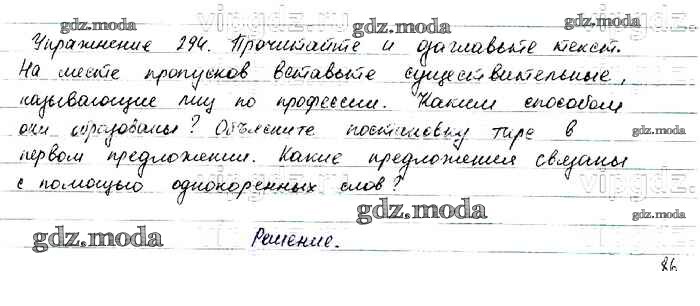 vipgdz.ru
gdz.moda
gdz.moda
Упражнение 294. Прочитайте и озаглавьте текст.
gdz.moda
На месте пропусков вставьте существительные,
называющие лиц по профессии. Каким способом
они образованы? Объясните постановку тире в
первом предложении. Какие предложения связаны
с помощью однокоренных слов?
gdz.moda
gdz.moda
gdz.moda
Решение.